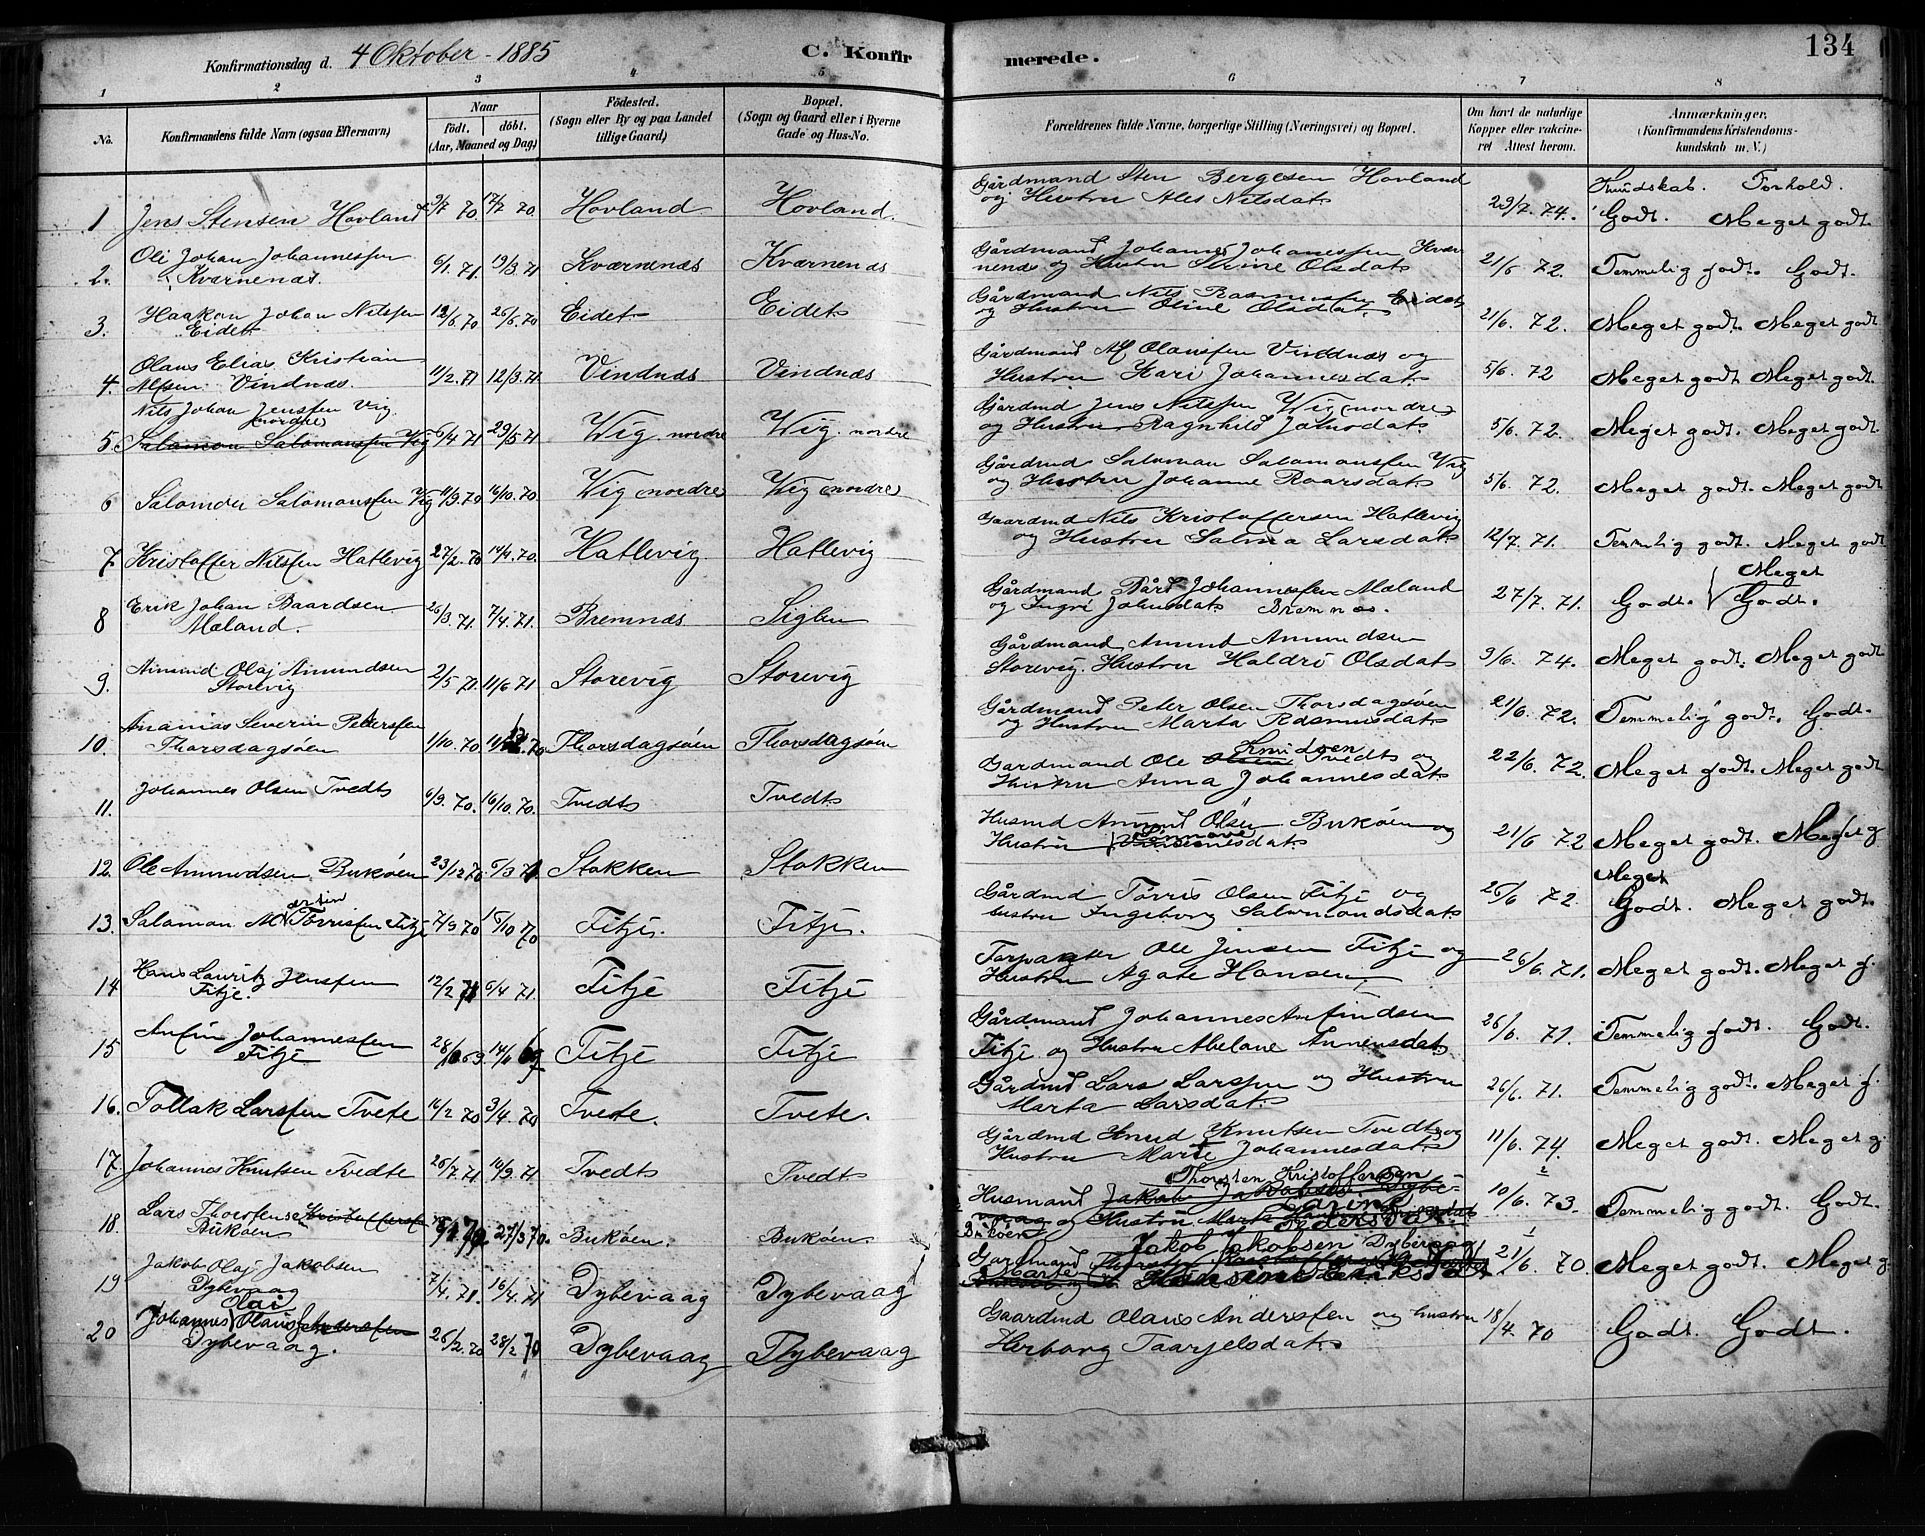 134
Konfirmationsdag d. 4 Oktober - 1885
C. Konfirmerede.
1 2 3 4 5 6 7 8
No. Konfirmandens fulde Navn (ogsaa Efternavn) Naar födt. döbt. (Aar, Maaned og Dag) Födested. (Sogn eller By og paa Landet tillige Gaard) Bopæl. (Sogn og Gaard eller i Byerne Gade og Hus-No. Forældrenes fulde Navne, borgerlige Stilling (Næringsvei) og Bopæl. Om havt de naturlige Kopper eller vakcineret Attest herom. Anmærkninger. (Konfirmandens Kristendomskundskab m. V.)
Kundskab. Forhold.
1 Jens Stensen Hovland 9/7 70. 17/7 70. Hovland Hovland. Gårdmand Sten Bergesen Hovland
og Hustru Ales Nilsdat. 29/7. 74. Godt. Meget godt.
2. Oli Johan Johannessen
Kvarnenæs. 6/1. 71. 19/3. 71 Kværnenæs Kværnenæs Gårdmand Johannes Johanessen Kvær
nenæs og Hustru Serine Olsdat. 21/6 72. Temmelig godt. Godt.
3. Haakon Johan Nilssen
Eidet 12/6. 70 26/6. 70 Eidet Eidet Gårdmand Nils Rasmussen Eidet
og Hustru Oline Olsdat. 21/6. 72. Meget godt. Meget godt
4. Olaus Elias Kristian
Alfsen Vindnæs. 11/2. 71 12/3. 71. Vindnæs Vindnæs Gårdmand Alf Olaussen Vindnæs og
Hustru Kari Johannesdat. 5/6. 72 Meget godt Meget godt.
5. Nils Johan Jenssen Vig
(nordre)
Salamon Salamonssen Vig 6/4 71 29/5 71 Wig nordre Wig. nordre Gårdmd Jens Nilssen Wig (nordre)
og Hustru Ragnhild Johnsdat. 5/6. 72. Meget godt. Meget godt.
6 Salomon Salomonssen Vig 11/9. 70 16/10. 70. Wig (nordre) Wig (nordre) Gårdmd Saloman Salamonssen Vig
og Hustru Johanne Roarsdat. 5/6. 72. Meget godt. Meget godt
7 Kristoffer Nilssen Hatlevig 27/2. 70 14/4. 70. Hatlevig Hatlevig Gaardmd Nils Kristoffersen Hatlevig
og Hustru Salma Larsdat. 12/7. 71. Temmelig godt. Meget godt
8 Erik Johan Baardsen
Mæland. 26/3. 71. 7/4. 71. Bremnæs Siglen Gårdmand Bård Johannessen Mæland
og Ingri Johnsdat. Bremnæs. 27/7. 71. Godt. Meget
Godt.
9. Amund Olaj Amundsen
Storevig 2/5 71. 11/6 71 Storevig Storevig Gårdmand Amund Amundsen
Storevig. Hustru Haldri Olsdat 9/6. 74. Meget godt. Meget godt
10. Ananias Severin Pedersen
Thorsdagsöen 1/10. 70 Thorsdagsöen Thorsdagsöen Gårdmand Peter Olsen Thorsdagsöen
og Hustru Marta Rasmusdat. 21/6. 72. Temmelig godt. Godt.
11. Johannes Olsen Tvedt 6/9. 70. 16/10. 70. Tvedt Tvedt. Gardmand Ole Olsen Knudsen Tvedt og
Hustru Anna Johannesdat. 22/6. 72. Meget godt. Meget godt
12. Ole Ammundsen Buköen 23/12 70 5/3 71 Stokken Stokken Husmd Amund Olsen Buköen og
Hustru Sinnove 21/6 72 Meget godt. Meget g
13. Salamon Martin Törrissen Fitje 7/9 70 10 70 Fitje. Fitje. Gårdmd Törris Olsen Fitje og
hustru Ingeborg Salomonsdat. 26/6 72. Meget
Godt. Meget godt.
14 Hans Lauritz Jenssen
Fitje. 12/2 71 6/4 71. Fitje Fitje Forpagter Ole Jensen Fitje og
Hustru Agate Hansen 26/6. 71. Meget godt. Meget g.
15 Anfin Johannessen
Fitje Fitje Fitje Gårdmand Johannes Anfindsen
Fitje og Hustru Abelone 26/6. 71. Temmelig godt. Godt.
16. Tollak Larssen Tvete 16/2 70 3/4. 70 Tvete. Tvete. Gårdmd Lars Larssen og Hustru
Marta Larsdat. 26/6. 71. Temmelig godt. Meget g.
17. Johannes Knutsen Tvedte 26/7. 71 10/9. 71 Tvedt Tvedt Gårdmd Knud Knutsen Tvedt og
Hustru Marte Johannesdat. 11/6. 74. Meget godt. Meget g.
18. Lars Thorstensen Kristoffersen
Buköen 27/3 70. Buköen. Buköen. Husmand Thorsten Kristoffersen
Buköen 10/6. 73. Temmelig godt. Godt.
19 Jakob Olaj Jakobsen
Dybevaag 7/4. 71. 16/4. 71 Dybevaag Dybevaag Gardmand Jakob Jakobsen Dybevaag
21/6. 70. Meget godt. Meget g.
20 Johannes Olai Olaus Anderssen
Dybevaag. 26/2. 70 28/2 70 Dybevaag Dybevaag Gaardmd Olaus Anderssen og hustru
Herborg Taarjelsdat. 18/4. 70 Godt. Godt.